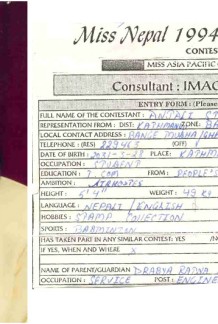 Miss Nepal 1994
CONTES
MISS ASIA PACIFIC
Consultant : IMAC
ENTRY FORM : (Please
FULL NAME OF THE CONTESTANT : ANJALI
REPRESENTATION FROM : DIST: KATHMANDU ZONE: BA
LOCAL CONTACT ADDRESS :
TELEPHONE : (RES) 229463 (OFF)
DATE OF BIRTH : PLACE: KATHM
OCCUPATION : STUDENT
EDUCATION : I.COM FROM : PEOPLE'S
AMBITION : AIRHOSTES
HEIGHT : WEIGHT : 49 KG
LANGUAGE : NEPALI / ENGLISH
HOBBIES : STAMP COLLECTION
SPORTS : BADMINTON
HAS TAKEN PART IN ANY SIMILAR CONTEST: YES
IF YES, WHEN AND WHERE X
NAME OF PARENT/GUARDIAN
OCCUPATION : SERVICE POST : ENGINE